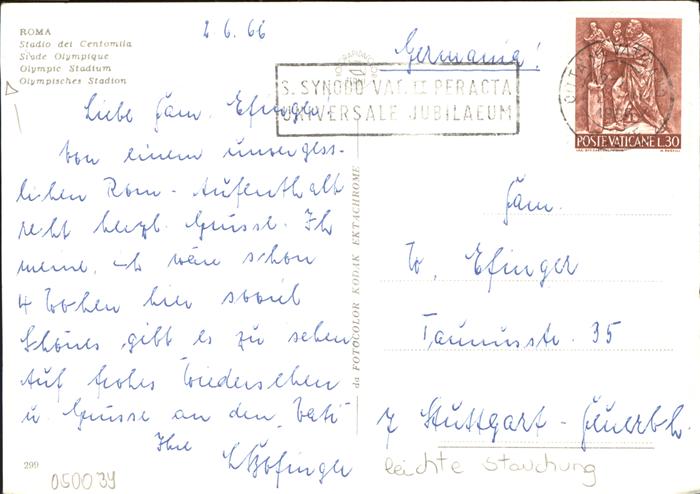 ROMA
Stadio dei Centomila
Stade Olympique
Olympic Stadium
Olympisches Stadion
2.6.66
Germania!
S. SYNODO VAT. II PERACTA
UNIVERSALE JUBILAEUM
POSTE VATICANE L.30
Liebe Fam. Efinger!
Von einem unvergess-
lichen Rom-Aufenthalt
recht herzl. Grüsse. Ich
meine, ich wäre schon
4 Wochen hier soviel
Schönes gibt es zu sehen
Auf frohes Wiedersehen
u. Grüsse an den "Vati"
Ihre
da FOTOCOLOR KODAK EKTACHROME
Fam.
W. Efinger
Taunusstr. 35
7 Stuttgart-Feuerbch.
299
050034
leichte Stauchung